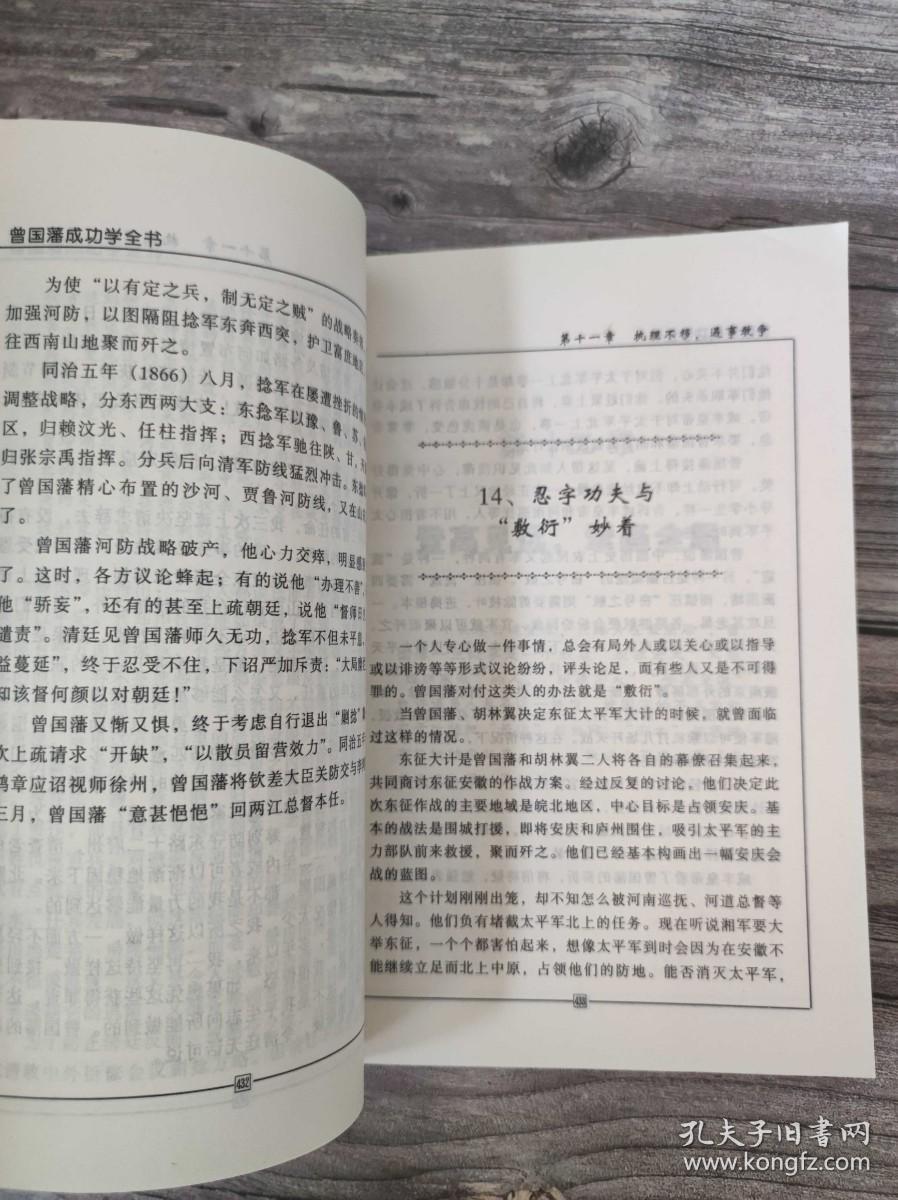 曾国藩成功学全书
为使“以有定之兵，制无定之贼”的战略
加强河防，以图隔阻捻军东奔西突，护卫富庶地
往西南山地聚而歼之。
同治五年（1866）八月，捻军在屡遭挫折的
调整战略，分东西两大支：东捻军以豫、鲁、苏、
区，归赖汶光、任柱指挥；西捻军驰往陕、甘，
归张宗禹指挥。分兵后向清军防线猛烈冲击。东
了曾国藩精心布置的沙河、贾鲁河防线，又在山
了。
曾国藩河防战略破产，他心力交瘁，明显感
了。这时，各方议论蜂起；有的说他“办理不善”，
他“骄妄”，还有的甚至上疏朝廷，说他“督师日
谴责”。清廷见曾国藩师久无功，捻军不但未平息，
益蔓延”，终于忍受不住，下诏严加斥责：“大局
知该督何颜以对朝廷！”
曾国藩又惭又惧，终于考虑自行退出“剿捻”
次上疏请求“开缺”，“以散员留营效力”。同治五年
鸿章应诏视师徐州，曾国藩将钦差大臣关防交与李
三月，曾国藩“意甚悒悒”回两江总督本任。
432
第十一章 执理不移，遇事敢争
14、忍字功夫与
“敷衍”妙着
一个人专心做一件事情，总会有局外人或以关心或以指导
或以诽谤等等形式议论纷纷，评头论足，而有些人又是不可得
罪的。曾国藩对付这类人的办法就是“敷衍”。
当曾国藩、胡林翼决定东征太平军大计的时候，就曾面临
过这样的情况。
东征大计是曾国藩和胡林翼二人将各自的幕僚召集起来，
共同商讨东征安徽的作战方案。经过反复的讨论，他们决定此
次东征作战的主要地域是皖北地区，中心目标是占领安庆。基
本的战法是围城打援，即将安庆和庐州围住，吸引太平军的主
力部队前来救援，聚而歼之。他们已经基本构画出一幅安庆会
战的蓝图。
这个计划刚刚出笼，却不知怎么被河南巡抚、河道总督等
人得知。他们负有堵截太平军北上的任务。现在听说湘军要大
举东征，一个个都害怕起来，想像太平军到时会因为在安徽不
能继续立足而北上中原，占领他们的防地。能否消灭太平军，
433
孔夫子旧书网
www.kongfz.com